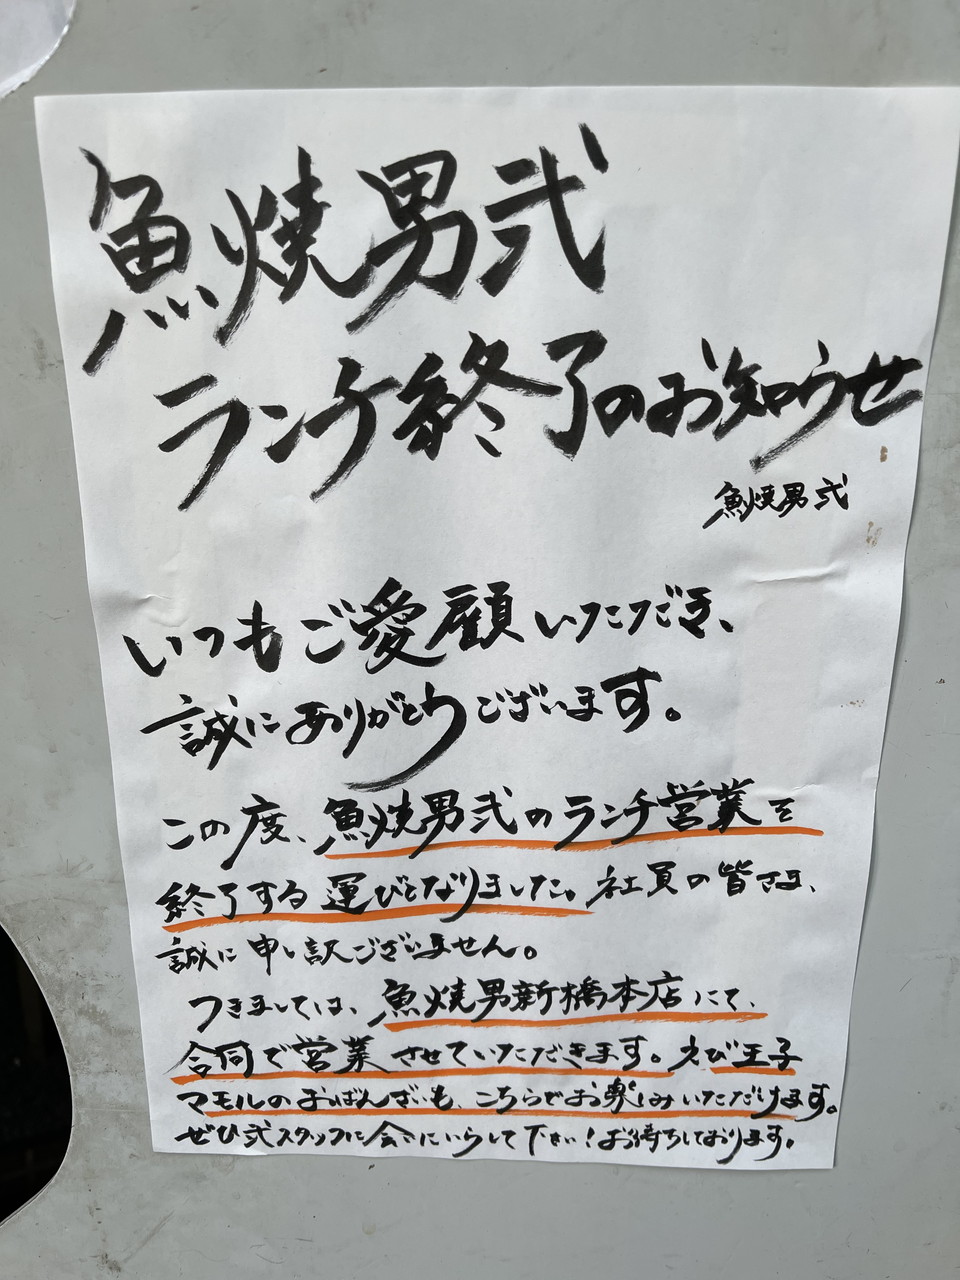 魚焼男弐
ランチ終了のお知らせ
魚焼男弐
いつもご愛顧いただき、
誠にありがとうございます。
この度、魚焼男弐のランチ営業を
終了する運びとなりました。社員の皆さま、
誠に申し訳ございません。
つきましては、魚焼男新橋本店にて、
合同で営業させていただきます。えび王子
マモルのおばんざいも、こちらでお楽しみいただけます。
ぜひ弐スタッフに会いにいらして下さい！お待ちしております。